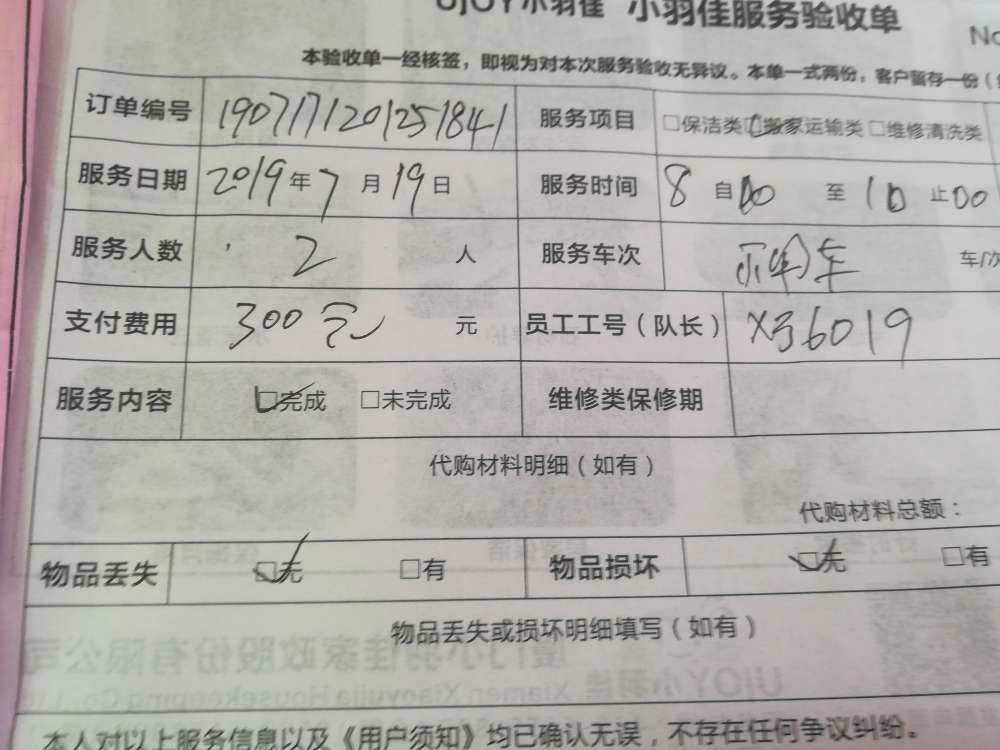 UJOY小羽佳 小羽佳服务验收单 No
本验收单一经核签，即视为对本次服务验收无异议。本单一式两份，客户留存一份（
订单编号 1907171201251841 服务项目 □保洁类 □搬家运输类 □维修清洗类
服务日期 2019年7月19日 服务时间 8 自00 至 10 止00
服务人数 2 人 服务车次 车 车/次
支付费用 300元 元 员工工号（队长） X36019
服务内容 ☑完成 □未完成 维修类保修期
代购材料明细（如有）
代购材料总额：
物品丢失 ☑无 □有 物品损坏 ☑无 □有
物品丢失或损坏明细填写（如有）
厦门小羽佳家政股份有限公司
UJOY小羽佳 Xiamen Xiaoyujia Housekeeping Co., Ltd
本人对以上服务信息以及《用户须知》均已确认无误，不存在任何争议纠纷。